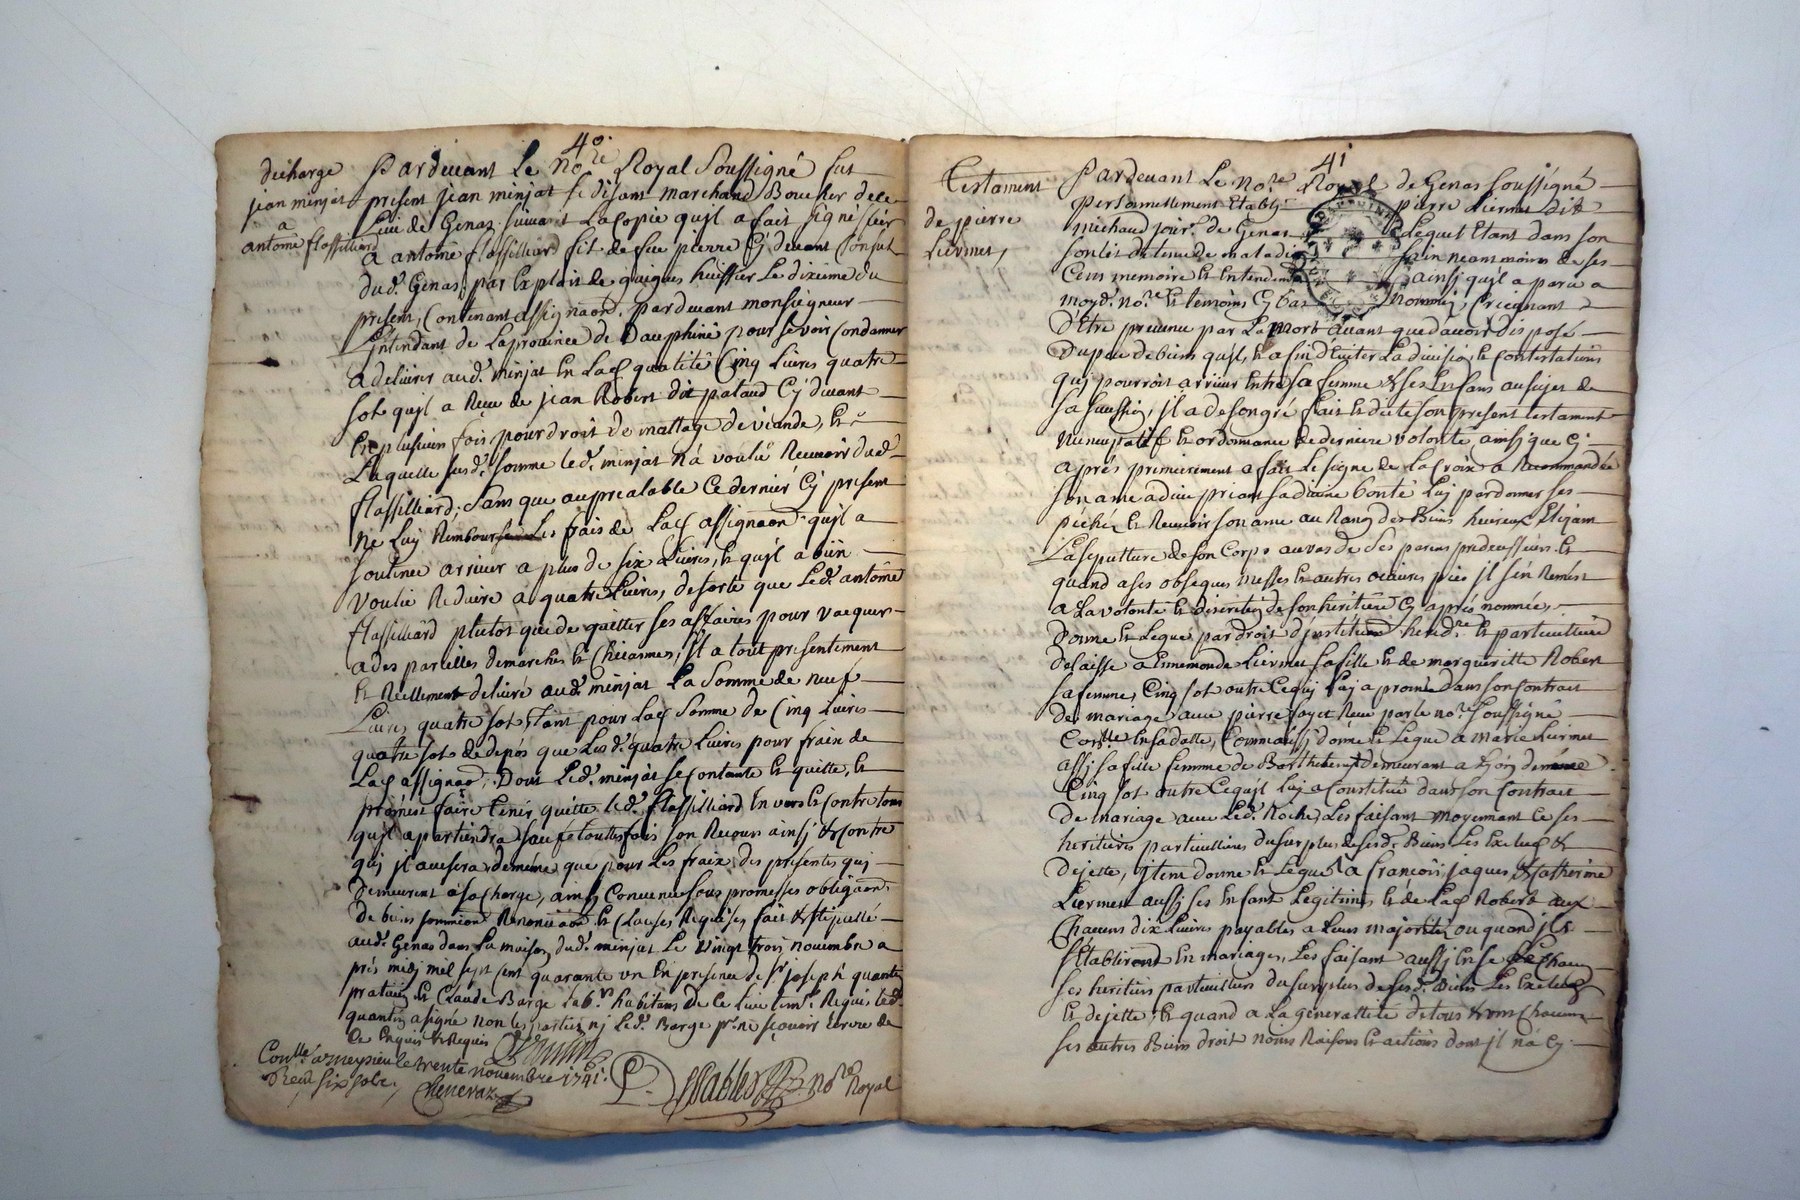 40
décharge
jean minjat
a
antoine flassilliard
Pardevant Le No.re Royal Soussigné fut
present jean minjat se disant marchand Boucher dele
Lieu de Genas suivant La Copie qu'jl a fait signifier
a antoine flassilliard fils de feu pierre Cy devant Consul
dud.t Genas, par Exploit de quiques huissier Le dixieme du
present, Contenant assignaon. pardevant monseigneur
L'jntendant de La province de Dauphiné pour se voir Condamner
a delivrer aud.t minjat En Lad. qualité Cinq Livres quatre
sols qu'jl a Reçu de jean Robert dit pataud Cy devant
En plusieurs fois pour droit de mattage de viande, Et
Laquelle susd.e somme led.t minjat n'a voulu Recevoir dud.t
flassilliard, sans que au prealable Ce dernier Cy present
Ne Luy Rembourse Les frais de Lad. assignaon qu'jl a
soutenu arriver a plus de six Livres, Et qu'jl a bien
voulu Reduire a quatre Livres, de sorte que Led.t antoine
flassilliard plutot que de quitter ses affaires pour vacquer
a des pareilles demarches Et Chicannes, jl a tout presentement
Et Réellement delivré aud.t minjat La Somme de neuf
Livres quatre sols, Tant pour Lad. Somme de Cinq Livres
quatre sols de depos que Lesd. quatre Livres pour frais de
Lad. assignaon, Dont Led.t minjat se Contante Et quitte, Et
promest faire tenir quitte led.t flassilliard En vers Et Contre tous
qu'jl apartiendra sauf touttesfois son Recours ainsj & Contre
quj jl avisera, de même que pour Les fraix des presentes quj
Demeurent a sa Charge, ainsj Convenu sous promesses obligaons
de biens soumions Renonciaons Et Clauses Requises fait & stipullé
aud.t Genas dans La maison dud.t minjat Le vingt trois novembre a
prés midj mil sept Cent quarante un En presence de S.r joseph quantin
praticien Et Claude Barge Lab.r habitans de Ce Lieu tem.s Requis Led.t
quantin a signé non Les parties nj Led.t Barge p.r ne sçavoir Ecrire de
Ce Enquis & Requis Quantin
Con.llé a meysieu le trente novembre 1741.
Receu six sols,
Chenevaz
Essables No.re Royal
41
Testament
de pierre
Liermet,
Pardevant Le No.re Royal de Genas soussigné
Personnellement Etably pierre Liermet dit
michaud jour.r de Genas Lequel Etant dans son
son Lit detenu de maladie sain neanmoins de ses
Cens memoire Et Entendement ainsj qu'jl a paru a
moyd. no.re Et temoins Cy bas Nommés, Craignant
D'Etre prevenu par La mort avant que d'avoir disposé
Du peu de biens qu'jl, Et afin d'Eviter La division Et Contestations
quj pourroit arriver Entre sa femme & ses Enfans au sujet de
sa Sussion, jl a de son gré fait Et dicté son present testament
Nuncupatif Et ordonnance de derniere volonté, ainsj que Cy
aprés premierement a fait Le signe de La Croix a Recommandée
son ame a dieu priant sa divine bonté Luy pardonner ses
péchés Et Recevoir son ame au Rang des Biens heureux Elizant
La sepulture de son Corps au vas de Ses parens predecessieurs Et
quand a ses obseques Messes Et autres oeuvres pies jl s'en Remést
a La volonté Et discretion de son heritiere Cy aprés nommée,
Donne Et Legue par droit d'jnstitution hered.re Et particulliere
delaisse a Ennemonde Liermet sa fille Et de margueritte Robert
sa femme, Cinq sols outre Ce quj Luj a promis dans son Contrait
de mariage avec pierre fayet Reçu par le no.re soussigné
Con.llé En sa datte, Comm'aussj donne Et Legue a Marie Liermet
assj sa fille femme de Barthelemy demeurant a Lyon de même
Cinq sols outre Ce qu'jl Luj a Constitué dans son Contrait
de mariage avec Led.t Roche, Les faisant moyennant Ce ses
heritieres particulieres du surplus de sesd.s Biens Les Exclud &
Dejette, jtem donne Et Legue a françois, jaques, & Catherine
Liermet aussj ses Enfant Legitimes, Et de Lad. Robert aux
Chacuns dix Livres payables a Leurs majorité ou quand jls
s'Etabliront En mariages, Les faisant aussj En se
ses heritiers particulliers du surplus de sesd.s Biens Les Exclud
Et dejette, Et quand a La generallité de tous & uns Chacuns
ses autres Biens droit noms Raisons Et actions dont jl n'a Cy